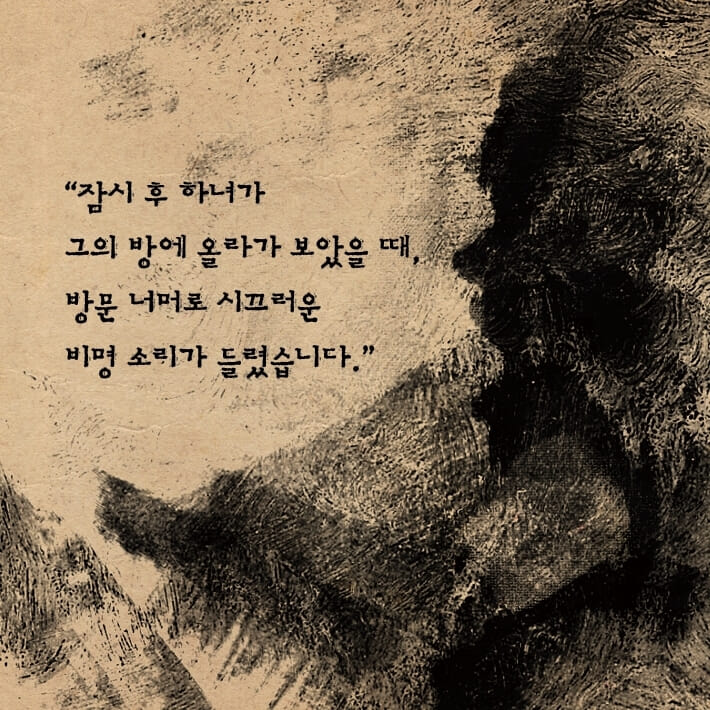 “잠시 후 하녀가
그의 방에 올라가 보았을 때,
방문 너머로 시끄러운
비명 소리가 들렸습니다.”